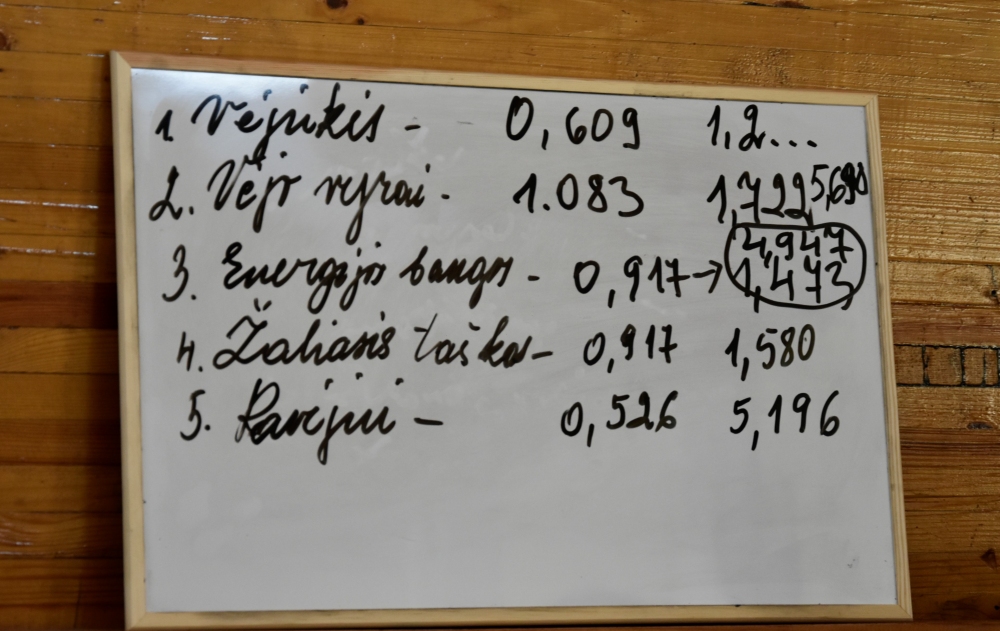 1 Vėjūkis - 0,609 1,2...
2. Vėjo vyrai - 1.083 1,722 5,690
4,947
3. Energijos bangos - 0,917 → 1,473
4. Žaliasis taškas - 0,917 1,580
5. Pavėjui - 0,526 5,196